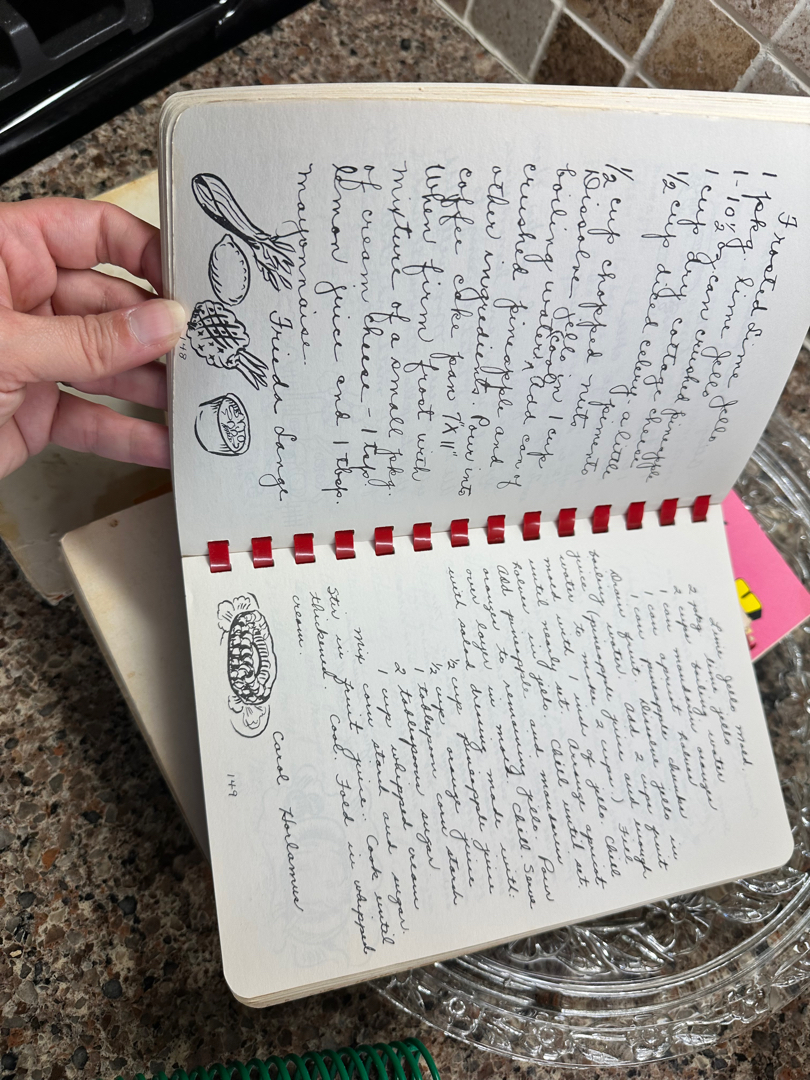 Frosted Lime Jello
1 pkg. lime Jello
1-10½ oz can crushed pineapple
1 cup dry cottage cheese
½ cup diced celery
a little pimento
½ cup chopped nuts
Dissolve Jello in 1 cup
boiling water, cool. Add can of
crushed pineapple and
other ingredients. Pour into
coffee cake pan 7X11"
When firm frost with
mixture of a small pkg.
of cream cheese - 1 tsp.
lemon juice and 1 tbsp.
mayonnaise.
Frieda Lange
148
Lime Jello Mold
2 pkg. lime jello
2 cups boiling water
1 can mandarin oranges
1 can apricot halves
1 can pineapple chunks
Drain fruit. Dissolve jello in
boiling water. Add 2 cups fruit
juice (pineapple juice and enough
water to make 2 cups.) Fill
mold with 1 inch of jello. Chill
until nearly set. Arrange apricot
halves in jello. Chill until set.
Add pineapple and mandarin
oranges to remaining jello. Pour
over layer in mold. Chill. Serve
with salad dressing made with:
½ cup pineapple juice
½ cup orange juice
1 tablespoon corn starch
2 tablespoons sugar
1 cup whipped cream
Mix corn starch and sugar.
Stir in fruit juice. Cook until
thickened. Cool. Fold in whipped
cream.
Carol
149